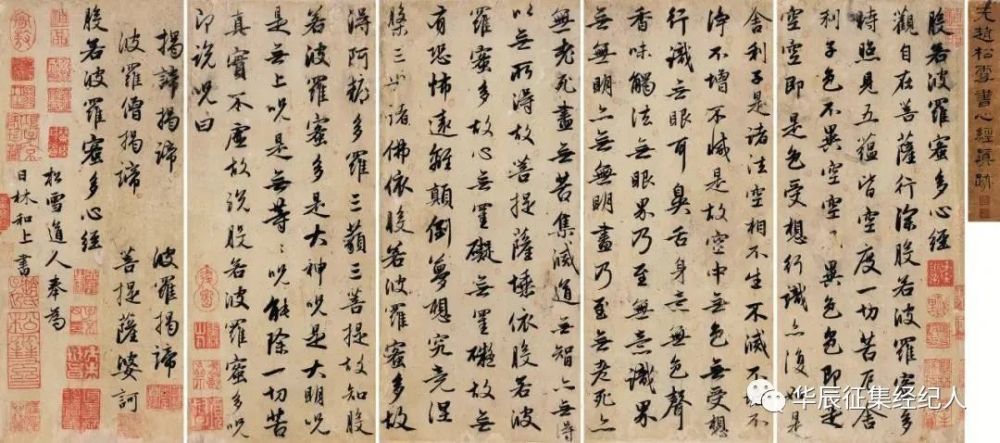 元趙松雪書心經真跡
般若波羅蜜多心經
觀自在菩薩行深般若波羅蜜多
時照見五蘊皆空度一切苦厄舍
利子色不異空空不異色色即是
空空即是色受想行識亦復如是
舍利子是諸法空相不生不滅不垢不
淨不增不減是故空中無色無受想
行識無眼耳鼻舌身意無色聲
香味觸法無眼界乃至無意識界
無無明亦無無明盡乃至無老死亦
無老死盡無苦集滅道無智亦無得
以無所得故菩提薩埵依般若波
羅蜜多故心無罣礙無罣礙故無
有恐怖遠離顛倒夢想究竟涅
槃三世諸佛依般若波羅蜜多故
得阿耨多羅三藐三菩提故知般
若波羅蜜多是大神呪是大明呪
是無上呪是無等〻呪能除一切苦
真實不虛故說般若波羅蜜多呪
即說呪曰
揭諦揭諦 波羅揭諦
波羅僧揭諦 菩提薩婆訶
般若波羅蜜多心經
松雪道人奉為
日林和上書
华辰征集经纪人